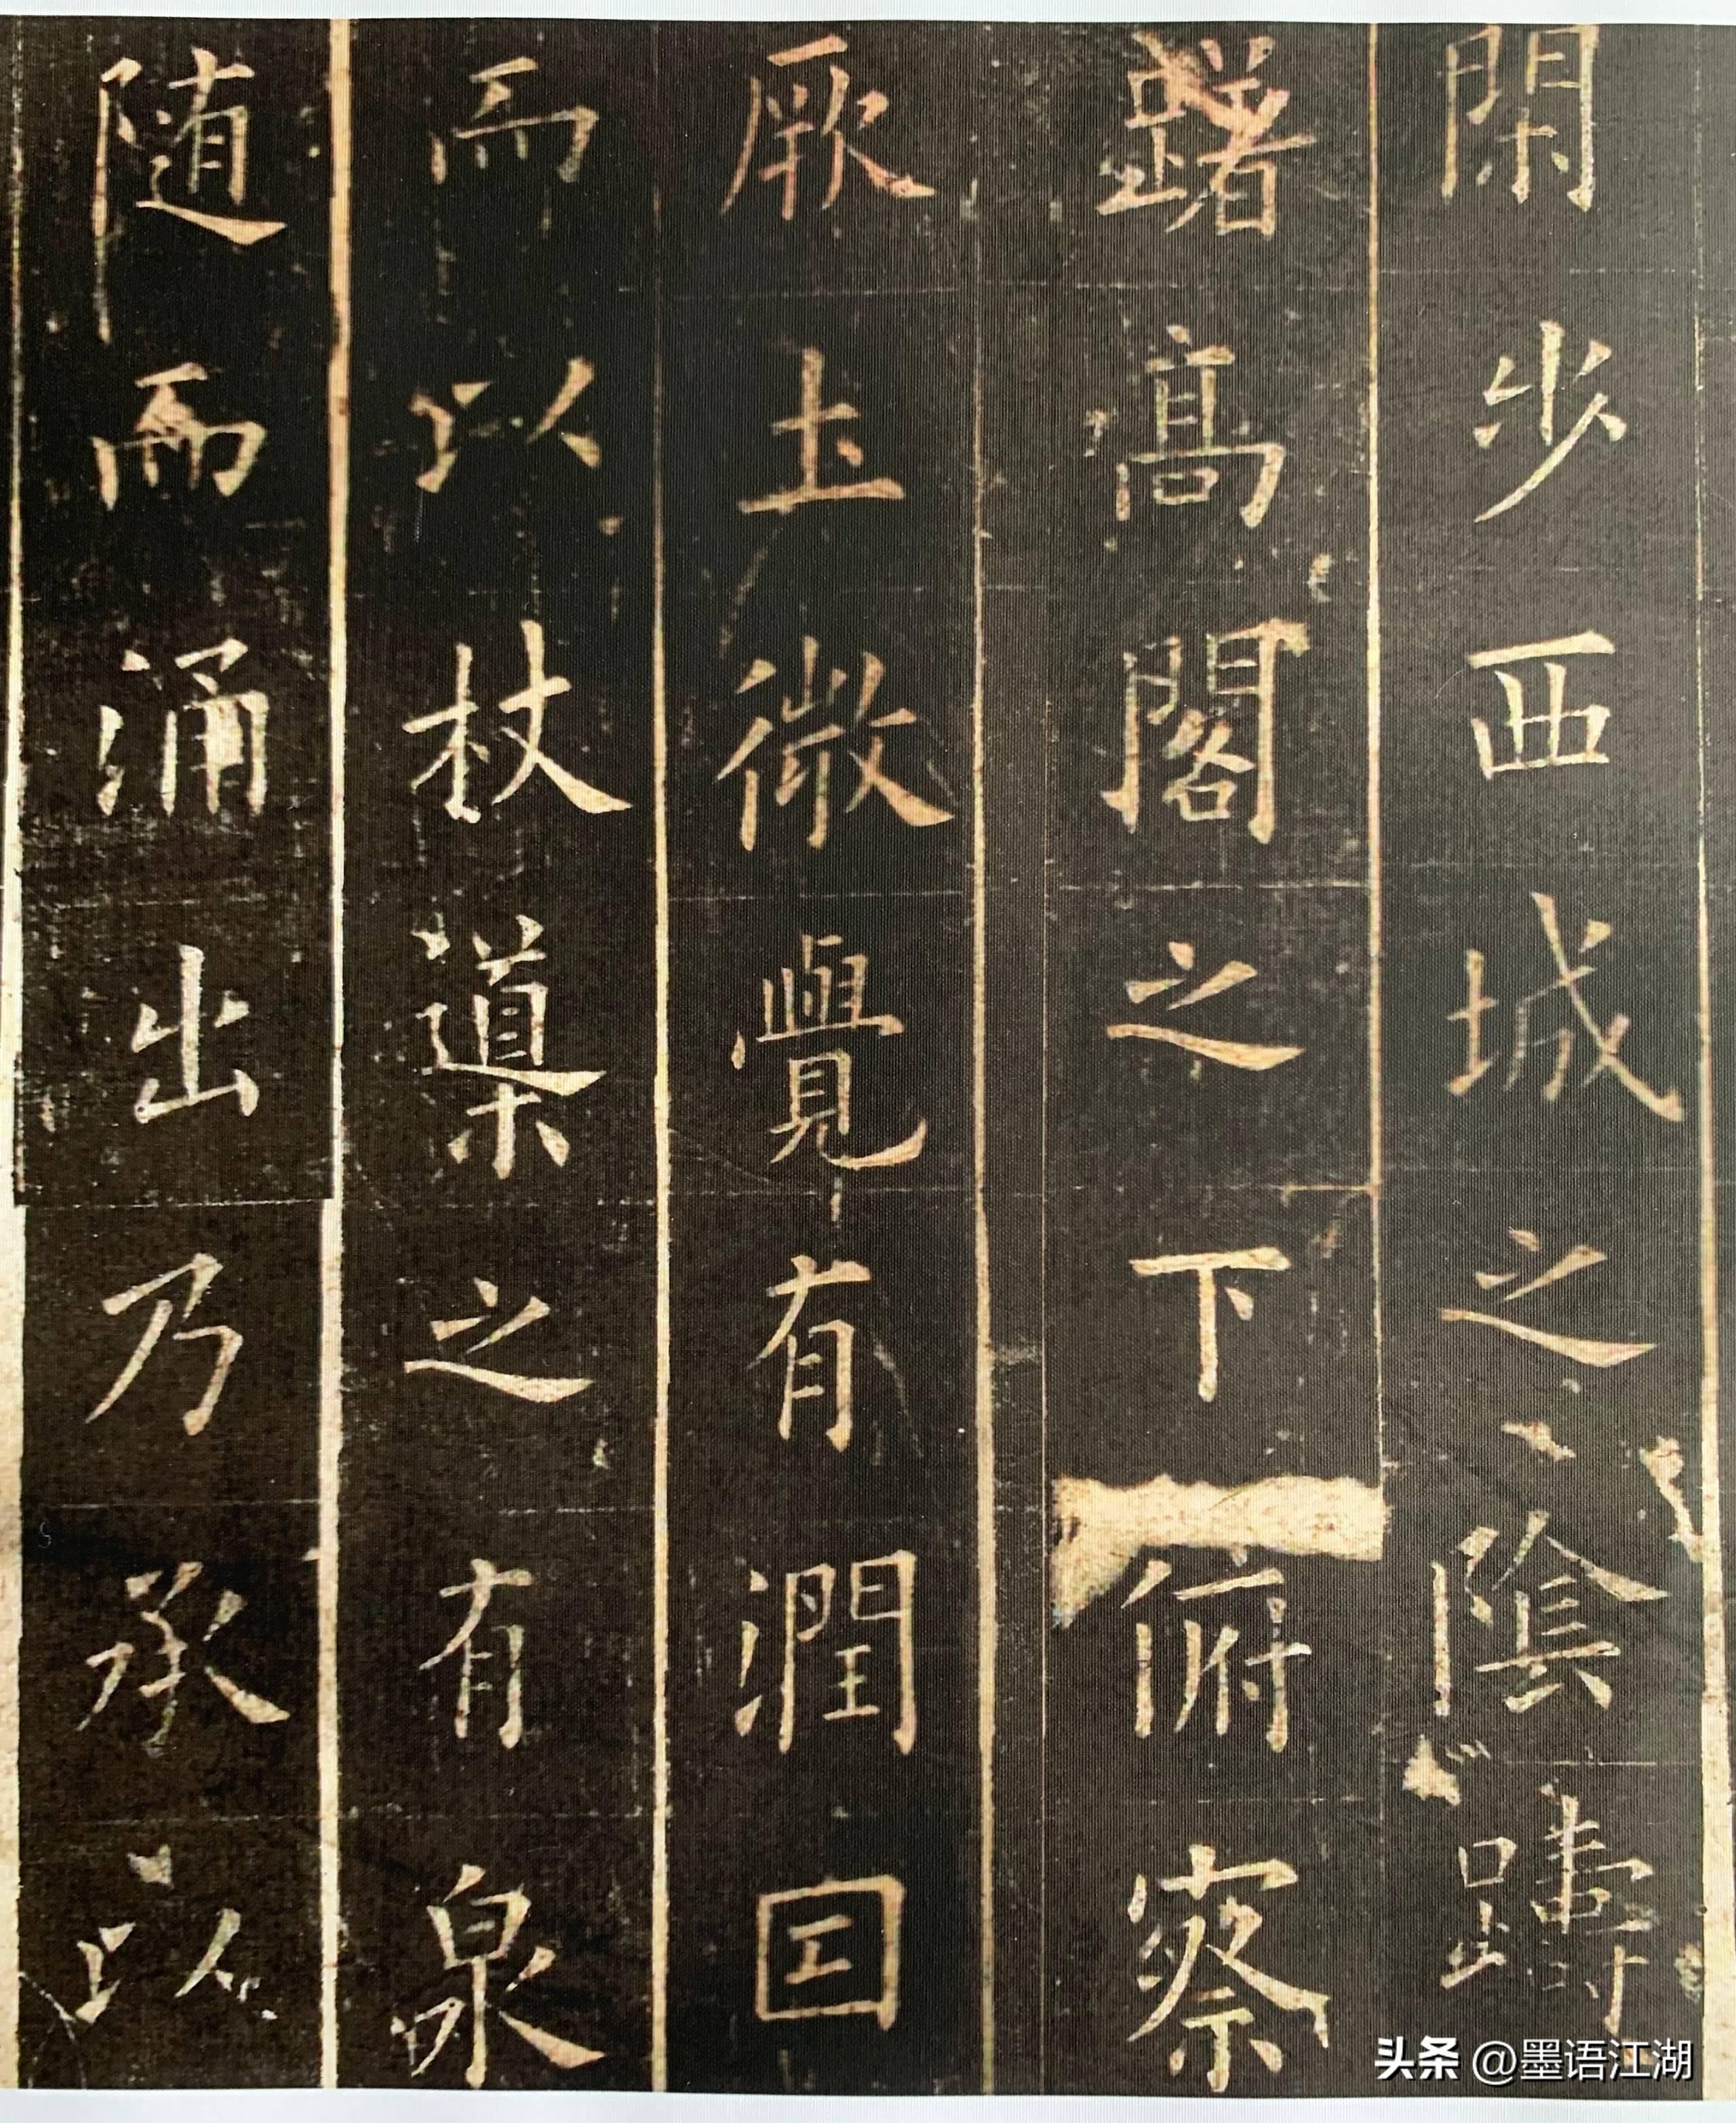 閑步西城之陰躊
躇高閣之下俯察
厥土微覺有潤因
而以杖導之有泉
随而涌出乃承以
头条 @墨语江湖